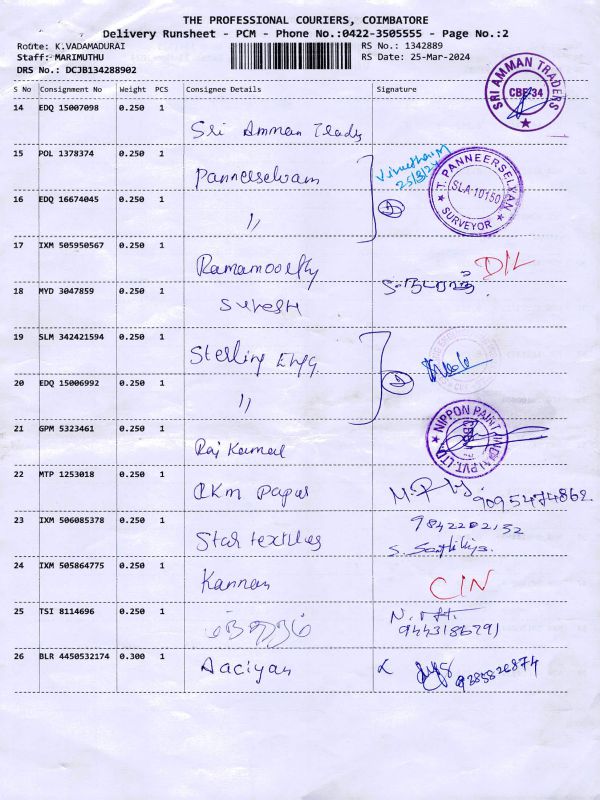 THE PROFESSIONAL COURIERS, COIMBATORE
Delivery Runsheet - PCM - Phone No.:0422-3505555 - Page No.:2
Route: K.VADAMADURAI RS No.: 1342889
Staff: MARIMUTHU RS Date: 25-Mar-2024
DRS No.: DCJB134288902
S No Consignment No Weight PCS Consignee Details Signature
SRI AMMAN TRADERS CBE 34
14 EDQ 15007098 0.250 1 Sri Amman Traders
15 POL 1378374 0.250 1 Panneerselvam
25/3/24
T. PANNEERSELVAN SLA 10150 SURVEYOR
16 EDQ 16674045 0.250 1 11
17 IXM 505950567 0.250 1 Ramamoorthy D/L
18 MYD 3047859 0.250 1 Suresh
19 SLM 342421594 0.250 1 Sterling Engg
20 EDQ 15006992 0.250 1 11
21 GPM 5323461 0.250 1 Raj Kamal
NIPPON PAINT (INDIA) PVT. LTD
22 MTP 1253018 0.250 1 RKM Paper 9095474862
23 IXM 506085378 0.250 1 Star textiles 9842202152
24 IXM 505864775 0.250 1 Kannan CIN
25 TSI 8114696 0.250 1 9443186291
26 BLR 4450532174 0.300 1 Aaciyan 9285826874